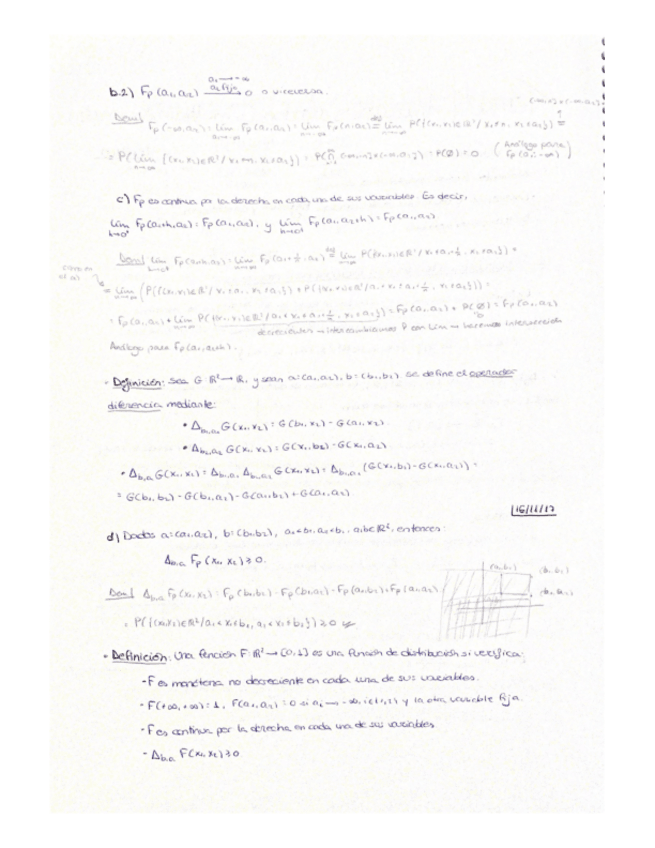 b.2) Fp(a₁,a₂) → 0 o viceversa.
a₁→-∞
a₂ fijo
Dem| Fp(-∞,a₂) = lim Fp(a₁,a₂) = lim Fp(n,a₂) = lim P({(x₁,x₂)∈ℝ² / x₁≤n, x₂≤a₂}) =
= P(lim {(x₁,x₂)∈ℝ² / x₁≤n, x₂≤a₂}) = = P(∅) = 0 (Análogo para Fp(a₁,-∞))
c) Fp es continua por la derecha en cada una de sus variables. Es decir,
lim Fp(a₁+h,a₂) = Fp(a₁,a₂), y lim Fp(a₁,a₂+h) = Fp(a₁,a₂)
h→0⁺ h→0⁺
Dem| lim Fp(a₁+h,a₂) = lim Fp(a₁+1/n,a₂) = lim P({(x₁,x₂)∈ℝ² / x₁≤a₁+1/n, x₂≤a₂}) =
= lim (P({(x₁,x₂)∈ℝ² / x₁≤a₁, x₂≤a₂}) + P({(x₁,x₂)∈ℝ² / a₁<x₁≤a₁+1/n, x₂≤a₂})) =
= Fp(a₁,a₂) + lim P({(x₁,x₂)∈ℝ² / a₁<x₁≤a₁+1/n, x₂≤a₂}) = Fp(a₁,a₂) + P(∅) = Fp(a₁,a₂)
decreciente → intercambiamos P con lim → hacemos intersección
Análogo para Fp(a₁,a₂+h).
- Definición: Sea G: ℝ²→ℝ, y sean a=(a₁,a₂), b=(b₁,b₂). Se define el operador
diferencia mediante:
• Δb₁,a₁ G(x₁,x₂) = G(b₁,x₂) - G(a₁,x₂)
• Δb₂,a₂ G(x₁,x₂) = G(x₁,b₂) - G(x₁,a₂)
• Δb,a G(x₁,x₂) = Δb₁,a₁ Δb₂,a₂ G(x₁,x₂) = Δb₁,a₁ (G(x₁,b₂) - G(x₁,a₂)) =
= G(b₁,b₂) - G(b₁,a₂) - G(a₁,b₂) + G(a₁,a₂)
16/11/17
d) Dados a=(a₁,a₂), b=(b₁,b₂), a₁<b₁, a₂<b₂, a,b∈ℝ², entonces:
Δb,a Fp(x₁,x₂) ≥ 0.
Dem| Δb,a Fp(x₁,x₂) = Fp(b₁,b₂) - Fp(b₁,a₂) - Fp(a₁,b₂) + Fp(a₁,a₂)
= P({(x₁,x₂)∈ℝ² / a₁<x₁≤b₁, a₂<x₂≤b₂}) ≥ 0
- Definición: Una función F: ℝ²→[0,1] es una función de distribución si verifica:
- F es monótona no decreciente en cada una de sus variables.
- F(+∞,+∞)=1, F(a₁,a₂)=0 si aᵢ→-∞, i∈{1,2} y la otra variable fija.
- F es continua por la derecha en cada una de sus variables
- Δb,a F(x₁,x₂) ≥ 0